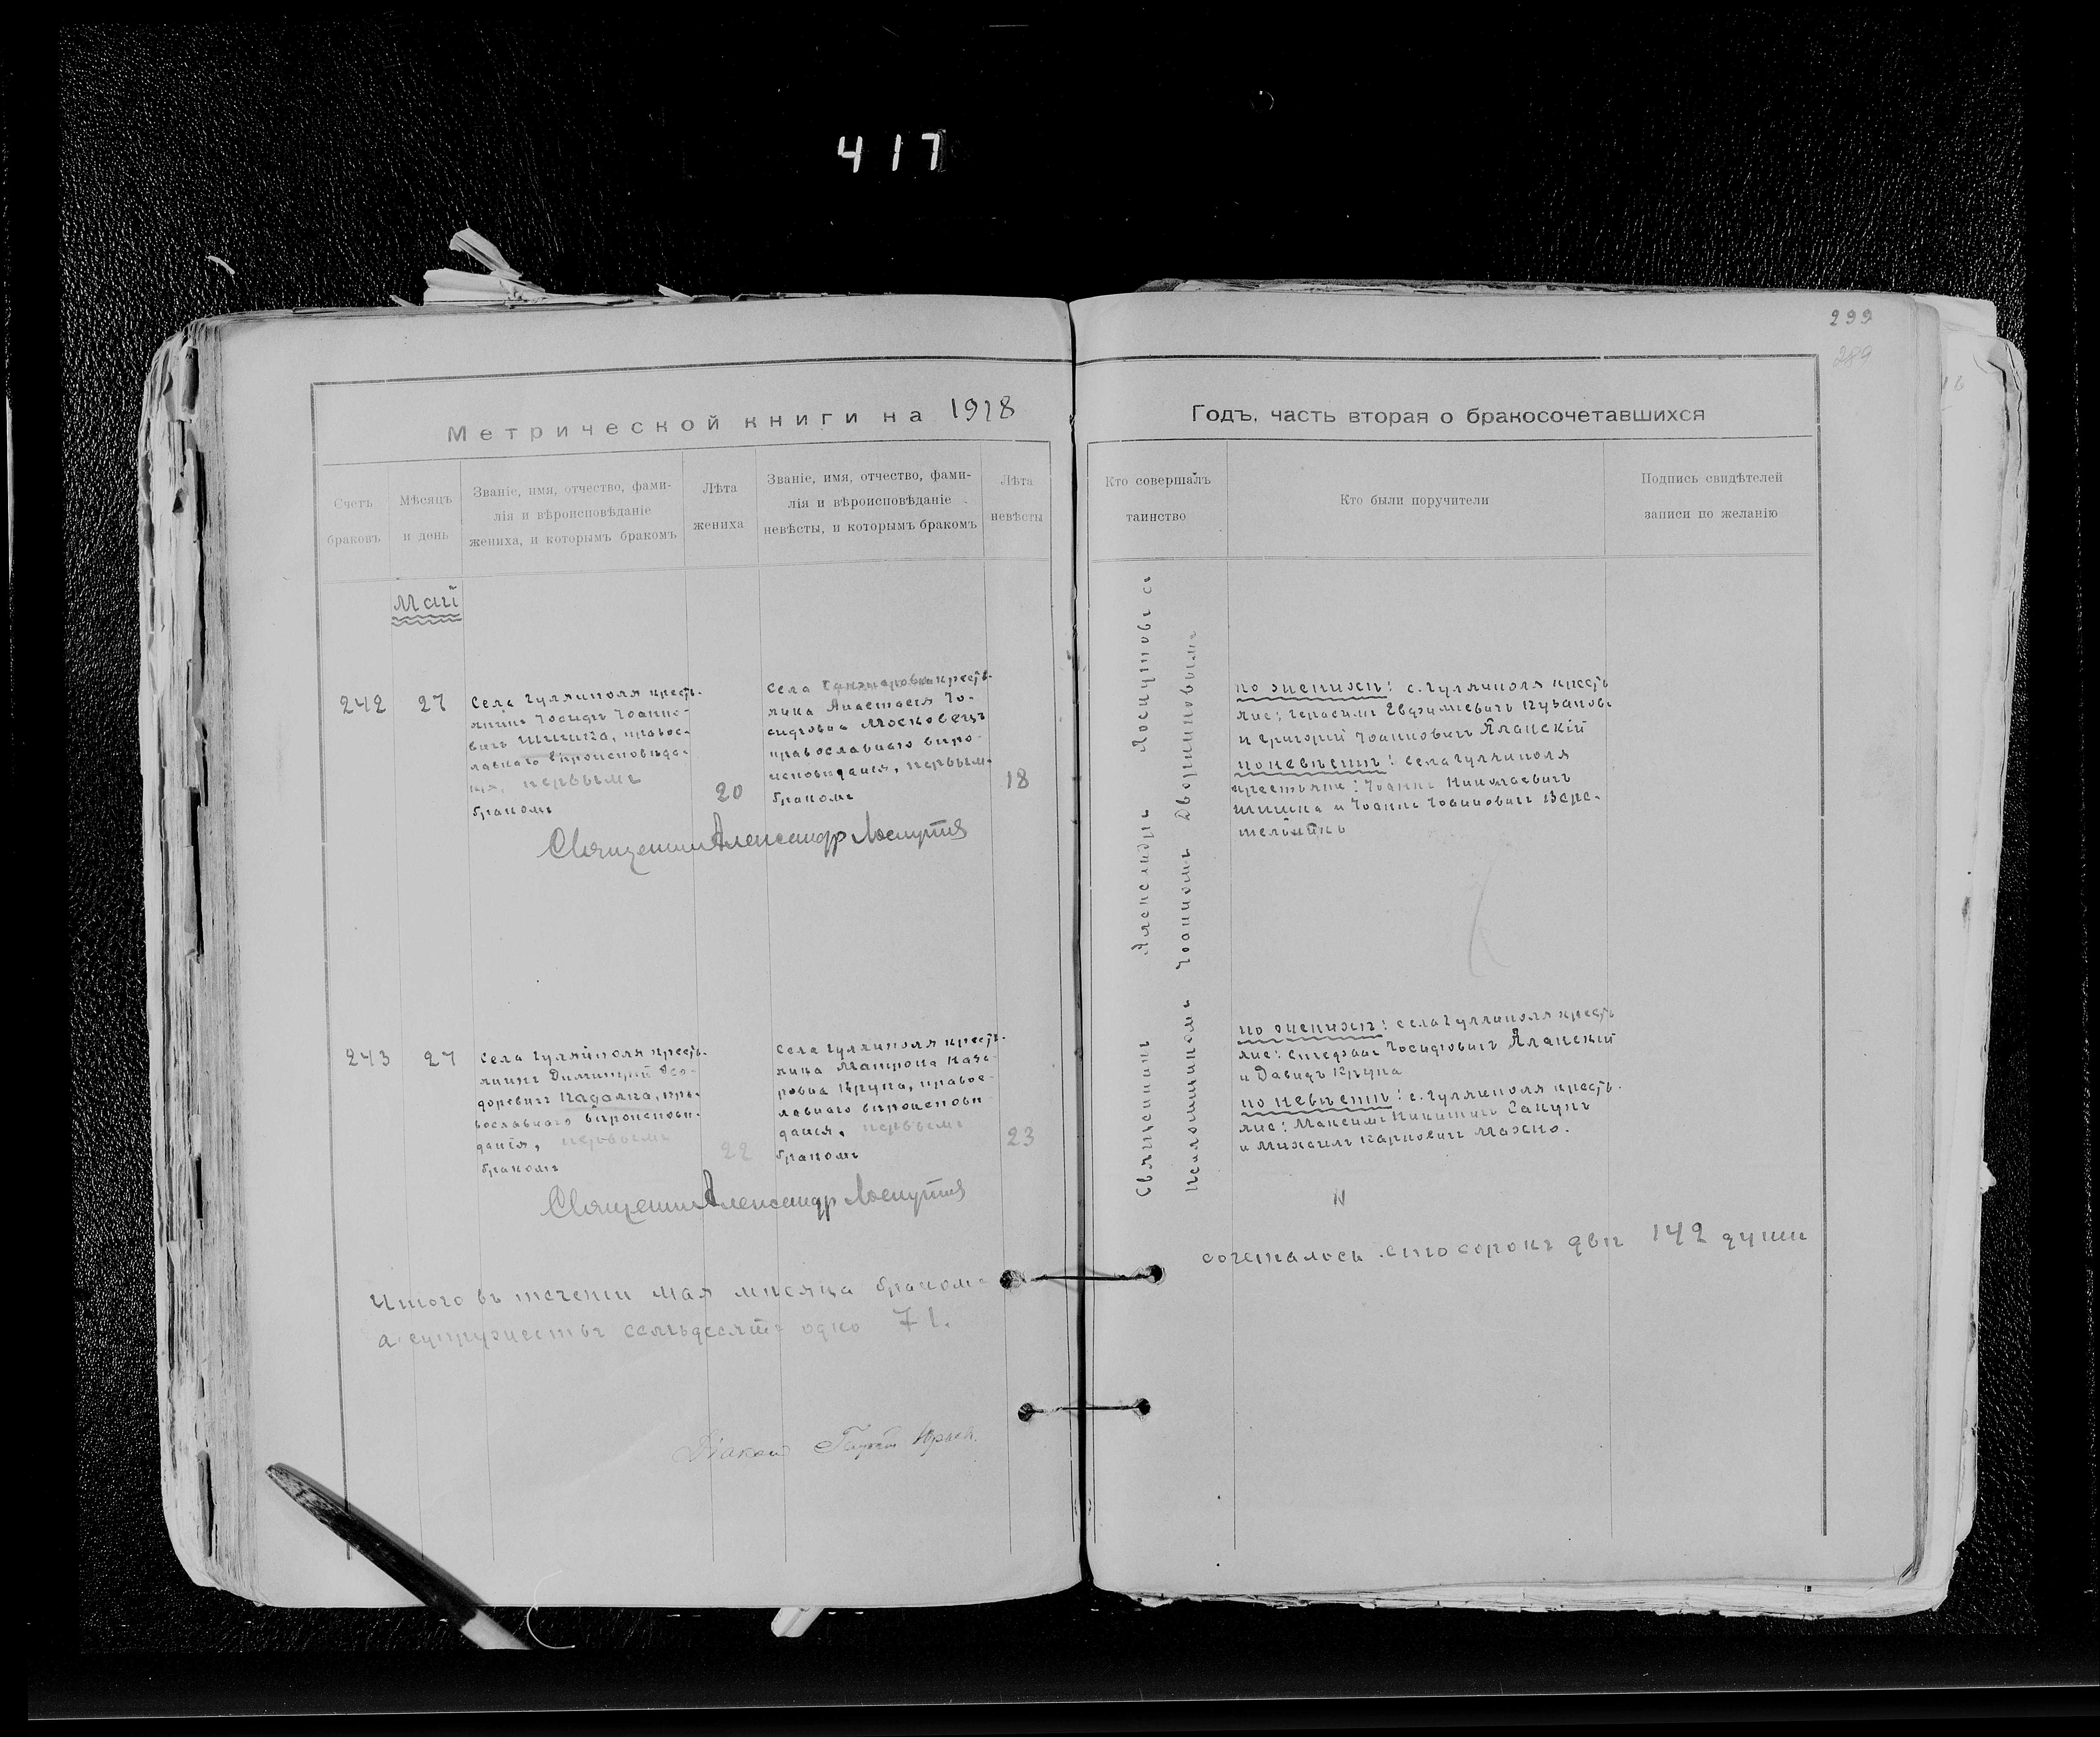 417
299
289
Метрической книги на 1918
Годъ, часть вторая о бракосочетавшихся
Счетъ
браковъ
Мѣсяцъ
и день
Званіе, имя, отчество, фами-
лія и вѣроисповѣданіе
жениха, и которымъ бракомъ
Лѣта
жениха
Званіе, имя, отчество, фами-
лія и вѣроисповѣданіе
невѣсты, и которымъ бракомъ
Лѣта
невѣсты
Кто совершалъ
таинство
Кто были поручители
Подпись свидѣтелей
записи по желанію
Май
242
27
Села Гуляйполя кресть-
янинъ Іосифъ Іоанно-
вичъ Шишка, правос-
лавнаго вѣроисповѣда-
нія, первымъ
бракомъ
20
Села крестъ-
янка Анастасія Іо-
сифовна Московецъ
православнаго вѣро-
исповѣданія, первым-
бракомъ
18
Священникъ Александръ Лоскутовъ
Священникъ Александръ Лоскутовъ съ
псаломщикомъ Іоанномъ Дворниковымъ
по женихѣ: с. Гуляйполя кресть
яне: Герасимъ Евфиміевичъ Пузановъ
и Григорій Іоанновичъ Яланскій
по невѣстѣ: села Гуляйполя
крестьяне: Іоаннъ Николаевичъ
Шишка и Іоаннъ Іоанновичъ Вере-
тельникъ
243
27
Села Гуляйполя кресть-
янинъ Димитрій Ѳео-
доровичъ Надалка, пра-
вославнаго вѣроисповѣ-
данія, первымъ
бракомъ
22
Села Гуляйполя кресть-
янка Матрона Наза-
ровна Крупа, правос-
лавнаго вѣроисповѣ
данія, первымъ
бракомъ
23
Священникъ Александръ Лоскутовъ
по женихѣ: села Гуляйполя кресть
яне: Стефанъ Іосифовичъ Яланскій
и Давидъ Крупа
по невѣстѣ: с. Гуляйполя кресть-
яне: Максимъ Никитичъ Сакунъ
и Михаилъ Карповичъ Махно.
Итого въ теченіи мая мѣсяца браком-
а супружествъ семьдесятъ одно 71.
сочеталось сто сорокъ двѣ 142 души
Діаконъ